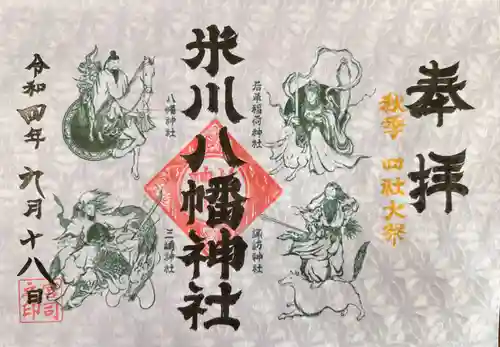 奉拝
秋季 四社大祭
若巫稲荷神社
諏訪神社
米川八幡神社
八幡神社
三嶋神社
令和四年 九月十八日
宮司之印